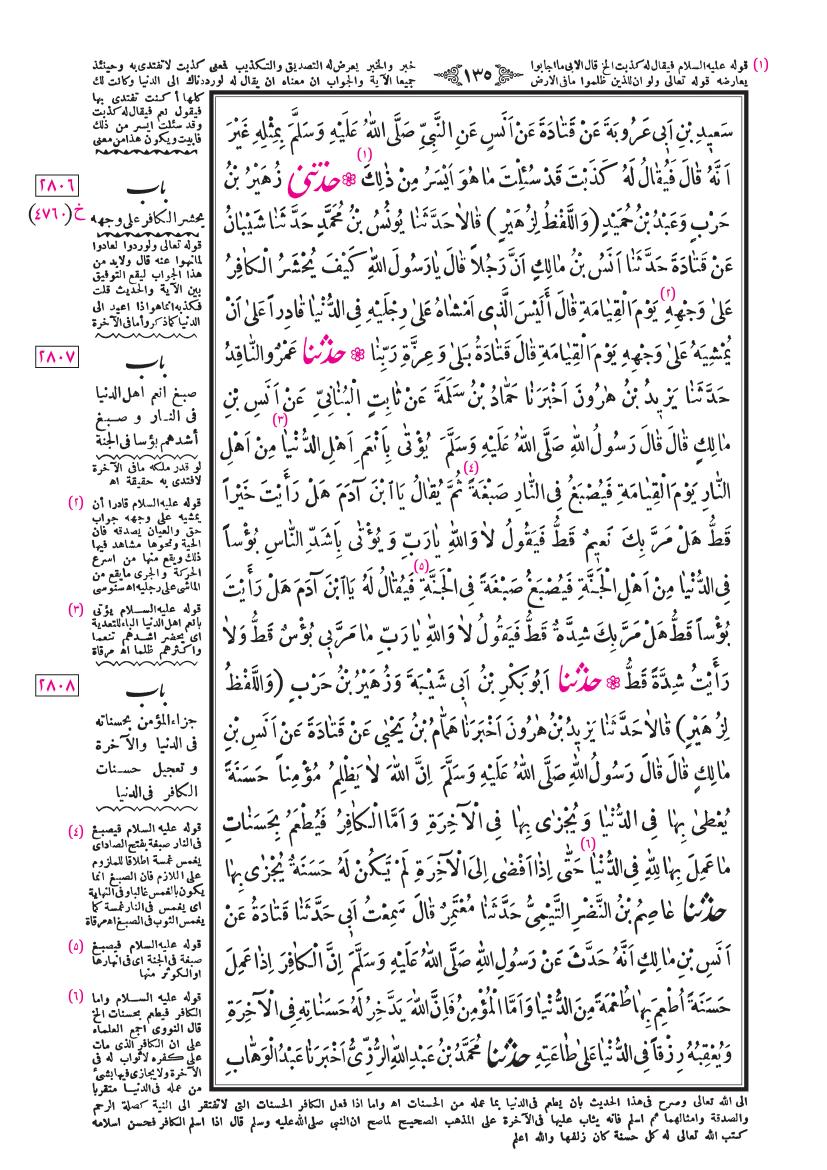 ١٣٥
(١) قوله عليه السلام فيقال له كذبت الخ قال الابى ما اجابوا
يعارضه قوله تعالى ولو ان للذين ظلموا ما فى الارض
خبر والخبر يعرض له التصديق والتكذيب فمعنى كذبت لا تفتدى به وحينئذ
جميعا الآية والجواب ان معناه ان يقال له لو رددناك الى الدنيا وكانت لك
كلها أكنت تفتدى بها
فيقول نعم فيقال له كذبت
وقد سئلت ايسر من ذلك
فابيت ويكون هذا من معنى
سَعيدِ بْنِ اَبى عَرُوبَةَ عَنْ قَتَادَةَ عَنْ اَنَسٍ عَنِ النَّبِيِّ صَلَّى اللهُ عَلَيْهِ وَسَلَّمَ بِمِثْلِهِ غَيْرَ
اَنَّهُ قَالَ فَيُقَالُ لَهُ كَذَبْتَ قَدْ سُئِلْتَ مَا هُوَ اَيْسَرُ مِنْ ذٰلِكَ (١) ۞ حَدَّثَنى زُهَيْرُ بْنُ
حَرْبٍ وَعَبْدُ بْنُ حُمَيْدٍ (وَاللَّفْظُ لِزُهَيْرٍ) قَالَا حَدَّثَنَا يُونُسُ بْنُ مُحَمَّدٍ حَدَّثَنَا شَيْبَانُ
عَنْ قَتَادَةَ حَدَّثَنَا اَنَسُ بْنُ مَالِكٍ اَنَّ رَجُلاً قَالَ يَا رَسُولَ اللهِ كَيْفَ يُحْشَرُ الْكَافِرُ
عَلىٰ وَجْهِهِ يَوْمَ الْقِيَامَةِ قَالَ (٢) أَلَيْسَ الَّذى اَمْشَاهُ عَلىٰ رِجْلَيْهِ فِى الدُّنْيَا قَادِراً عَلىٰ اَنْ
يُمْشِيَهُ عَلىٰ وَجْهِهِ يَوْمَ الْقِيَامَةِ قَالَ قَتَادَةُ بَلىٰ وَعِزَّةِ رَبِّنَا ۞ حَدَّثَنَا عَمْرٌو النَّاقِدُ
حَدَّثَنَا يَزيدُ بْنُ هٰرُونَ اَخْبَرَنَا حَمَّادُ بْنُ سَلَمَةَ عَنْ ثَابِتٍ الْبُنَانِيِّ عَنْ اَنَسِ بْنِ
مَالِكٍ قَالَ قَالَ رَسُولُ اللهِ صَلَّى اللهُ عَلَيْهِ وَسَلَّمَ يُؤْتىٰ بِاَنْعَمِ (٣) اَهْلِ الدُّنْيَا مِنْ اَهْلِ
النَّارِ يَوْمَ الْقِيَامَةِ فَيُصْبَغُ فِى النَّارِ صَبْغَةً (٤) ثُمَّ يُقَالُ يَا ابْنَ آدَمَ هَلْ رَأَيْتَ خَيْراً
قَطُّ هَلْ مَرَّ بِكَ نَعيمٌ قَطُّ فَيَقُولُ لَا وَاللهِ يَارَبِّ وَيُؤْتىٰ بِاَشَدِّ النَّاسِ بُؤْساً
فِى الدُّنْيَا مِنْ اَهْلِ الْجَنَّةِ فَيُصْبَغُ صَبْغَةً فِى الْجَنَّةِ (٥) فَيُقَالُ لَهُ يَا ابْنَ آدَمَ هَلْ رَأَيْتَ
بُؤْساً قَطُّ هَلْ مَرَّ بِكَ شِدَّةٌ قَطُّ فَيَقُولُ لَا وَاللهِ يَارَبِّ مَا مَرَّ بى بُؤْسٌ قَطُّ وَلَا
رَأَيْتُ شِدَّةً قَطُّ ۞ حَدَّثَنَا اَبُو بَكْرِ بْنُ اَبى شَيْبَةَ وَزُهَيْرُ بْنُ حَرْبٍ (وَاللَّفْظُ
لِزُهَيْرٍ) قَالَا حَدَّثَنَا يَزيدُ بْنُ هٰرُونَ اَخْبَرَنَا هَمَّامُ بْنُ يَحْيىٰ عَنْ قَتَادَةَ عَنْ اَنَسِ بْنِ
مَالِكٍ قَالَ قَالَ رَسُولُ اللهِ صَلَّى اللهُ عَلَيْهِ وَسَلَّمَ اِنَّ اللهَ لَا يَظْلِمُ مُؤْمِناً حَسَنَةً
يُعْطىٰ بِهَا فِى الدُّنْيَا وَيُجْزىٰ بِهَا فِى الْآخِرَةِ وَاَمَّا الْكَافِرُ فَيُطْعَمُ بِحَسَنَاتِ
مَا عَمِلَ بِهَا لِلّٰهِ فِى الدُّنْيَا (٦) حَتّٰى اِذَا اَفْضىٰ اِلَى الْآخِرَةِ لَمْ تَكُنْ لَهُ حَسَنَةٌ يُجْزىٰ بِهَا
حَدَّثَنَا عَاصِمُ بْنُ النَّضْرِ التَّيْمِيُّ حَدَّثَنَا مُعْتَمِرٌ قَالَ سَمِعْتُ اَبى حَدَّثَنَا قَتَادَةُ عَنْ
اَنَسِ بْنِ مَالِكٍ اَنَّهُ حَدَّثَ عَنْ رَسُولِ اللهِ صَلَّى اللهُ عَلَيْهِ وَسَلَّمَ اِنَّ الْكَافِرَ اِذَا عَمِلَ
حَسَنَةً اُطْعِمَ بِهَا طُعْمَةً مِنَ الدُّنْيَا وَاَمَّا الْمُؤْمِنُ فَاِنَّ اللهَ يَدَّخِرُ لَهُ حَسَنَاتِهِ فِى الْآخِرَةِ
وَيُعْقِبُهُ رِزْقاً فِى الدُّنْيَا عَلىٰ طَاعَتِهِ حَدَّثَنَا مُحَمَّدُ بْنُ عَبْدِ اللهِ الرُّزِّيُّ اَخْبَرَنَا عَبْدُ الْوَهَّابِ
٢٨٠٦
خ (٤٧٦٠)
باب
يحشر الكافر على وجهه
قوله تعالى ولو ردوا لعادوا
لما نهوا عنه قال ولابد من
هذا الجواب ليقع التوفيق
بين الآية والحديث قلت
فكذبه انما هو اذا اعيد الى
الدنيا كما ذكر وأما فى الآخرة
٢٨٠٧
باب
صبغ انعم اهل الدنيا
فى النار و صبغ
أشدهم بؤسا فى الجنة
لو قدر ملكه ما فى الآخرة
لافتدى به حقيقة اه
(٢) قوله عليه السلام قادرا أن
يمشيه على وجهه جواب
حق والعيان يصدقه فان
الحية ونحوها مشاهد فيها
ذلك ويقع منها من اسرع
الحركة والجرى ما يقع من
الماشى على رجليه اه سنوسى
(٣) قوله عليه السلام يؤتى
بانعم اهل الدنيا الباء للتعدية
اى يحضر اشدهم تنعما
واكثرهم ظلما اه مرقاة
٢٨٠٨
باب
جزاء المؤمن بحسناته
فى الدنيا والآخرة
و تعجيل حسنات
الكافر فى الدنيا
(٤) قوله عليه السلام فيصبغ
فى النار صبغة بفتح الصاد اى
يغمس غمسة اطلاقا للملزوم
على اللازم فان الصبغ انما
يكون بالغمس غالبا وفى النهاية
اى يغمس فى النار غمسة كما
يغمس الثوب فى الصبغ اه مرقاة
(٥) قوله عليه السلام فيصبغ
صبغة فى الجنة اى فى انهارها
او الكوثر منها
(٦) قوله عليه السلام واما
الكافر فيطعم بحسنات الخ
قال النووى اجمع العلماء
على ان الكافر الذى مات
على كفره لا ثواب له فى
الآخرة ولا يجازى فيها بشئ
من عمله فى الدنيا متقربا
الى الله تعالى وصرح فى هذا الحديث بان يطعم فى الدنيا بما عمله من الحسنات اه واما اذا فعل الكافر الحسنات التى لا تفتقر الى النية كصلة الرحم
والصدقة وامثالهما ثم اسلم فانه يثاب عليها فى الآخرة على المذهب الصحيح لما صح ان النبى صلى الله عليه وسلم قال اذا اسلم الكافر فحسن اسلامه
كتب الله تعالى له كل حسنة كان زلفها والله اعلم